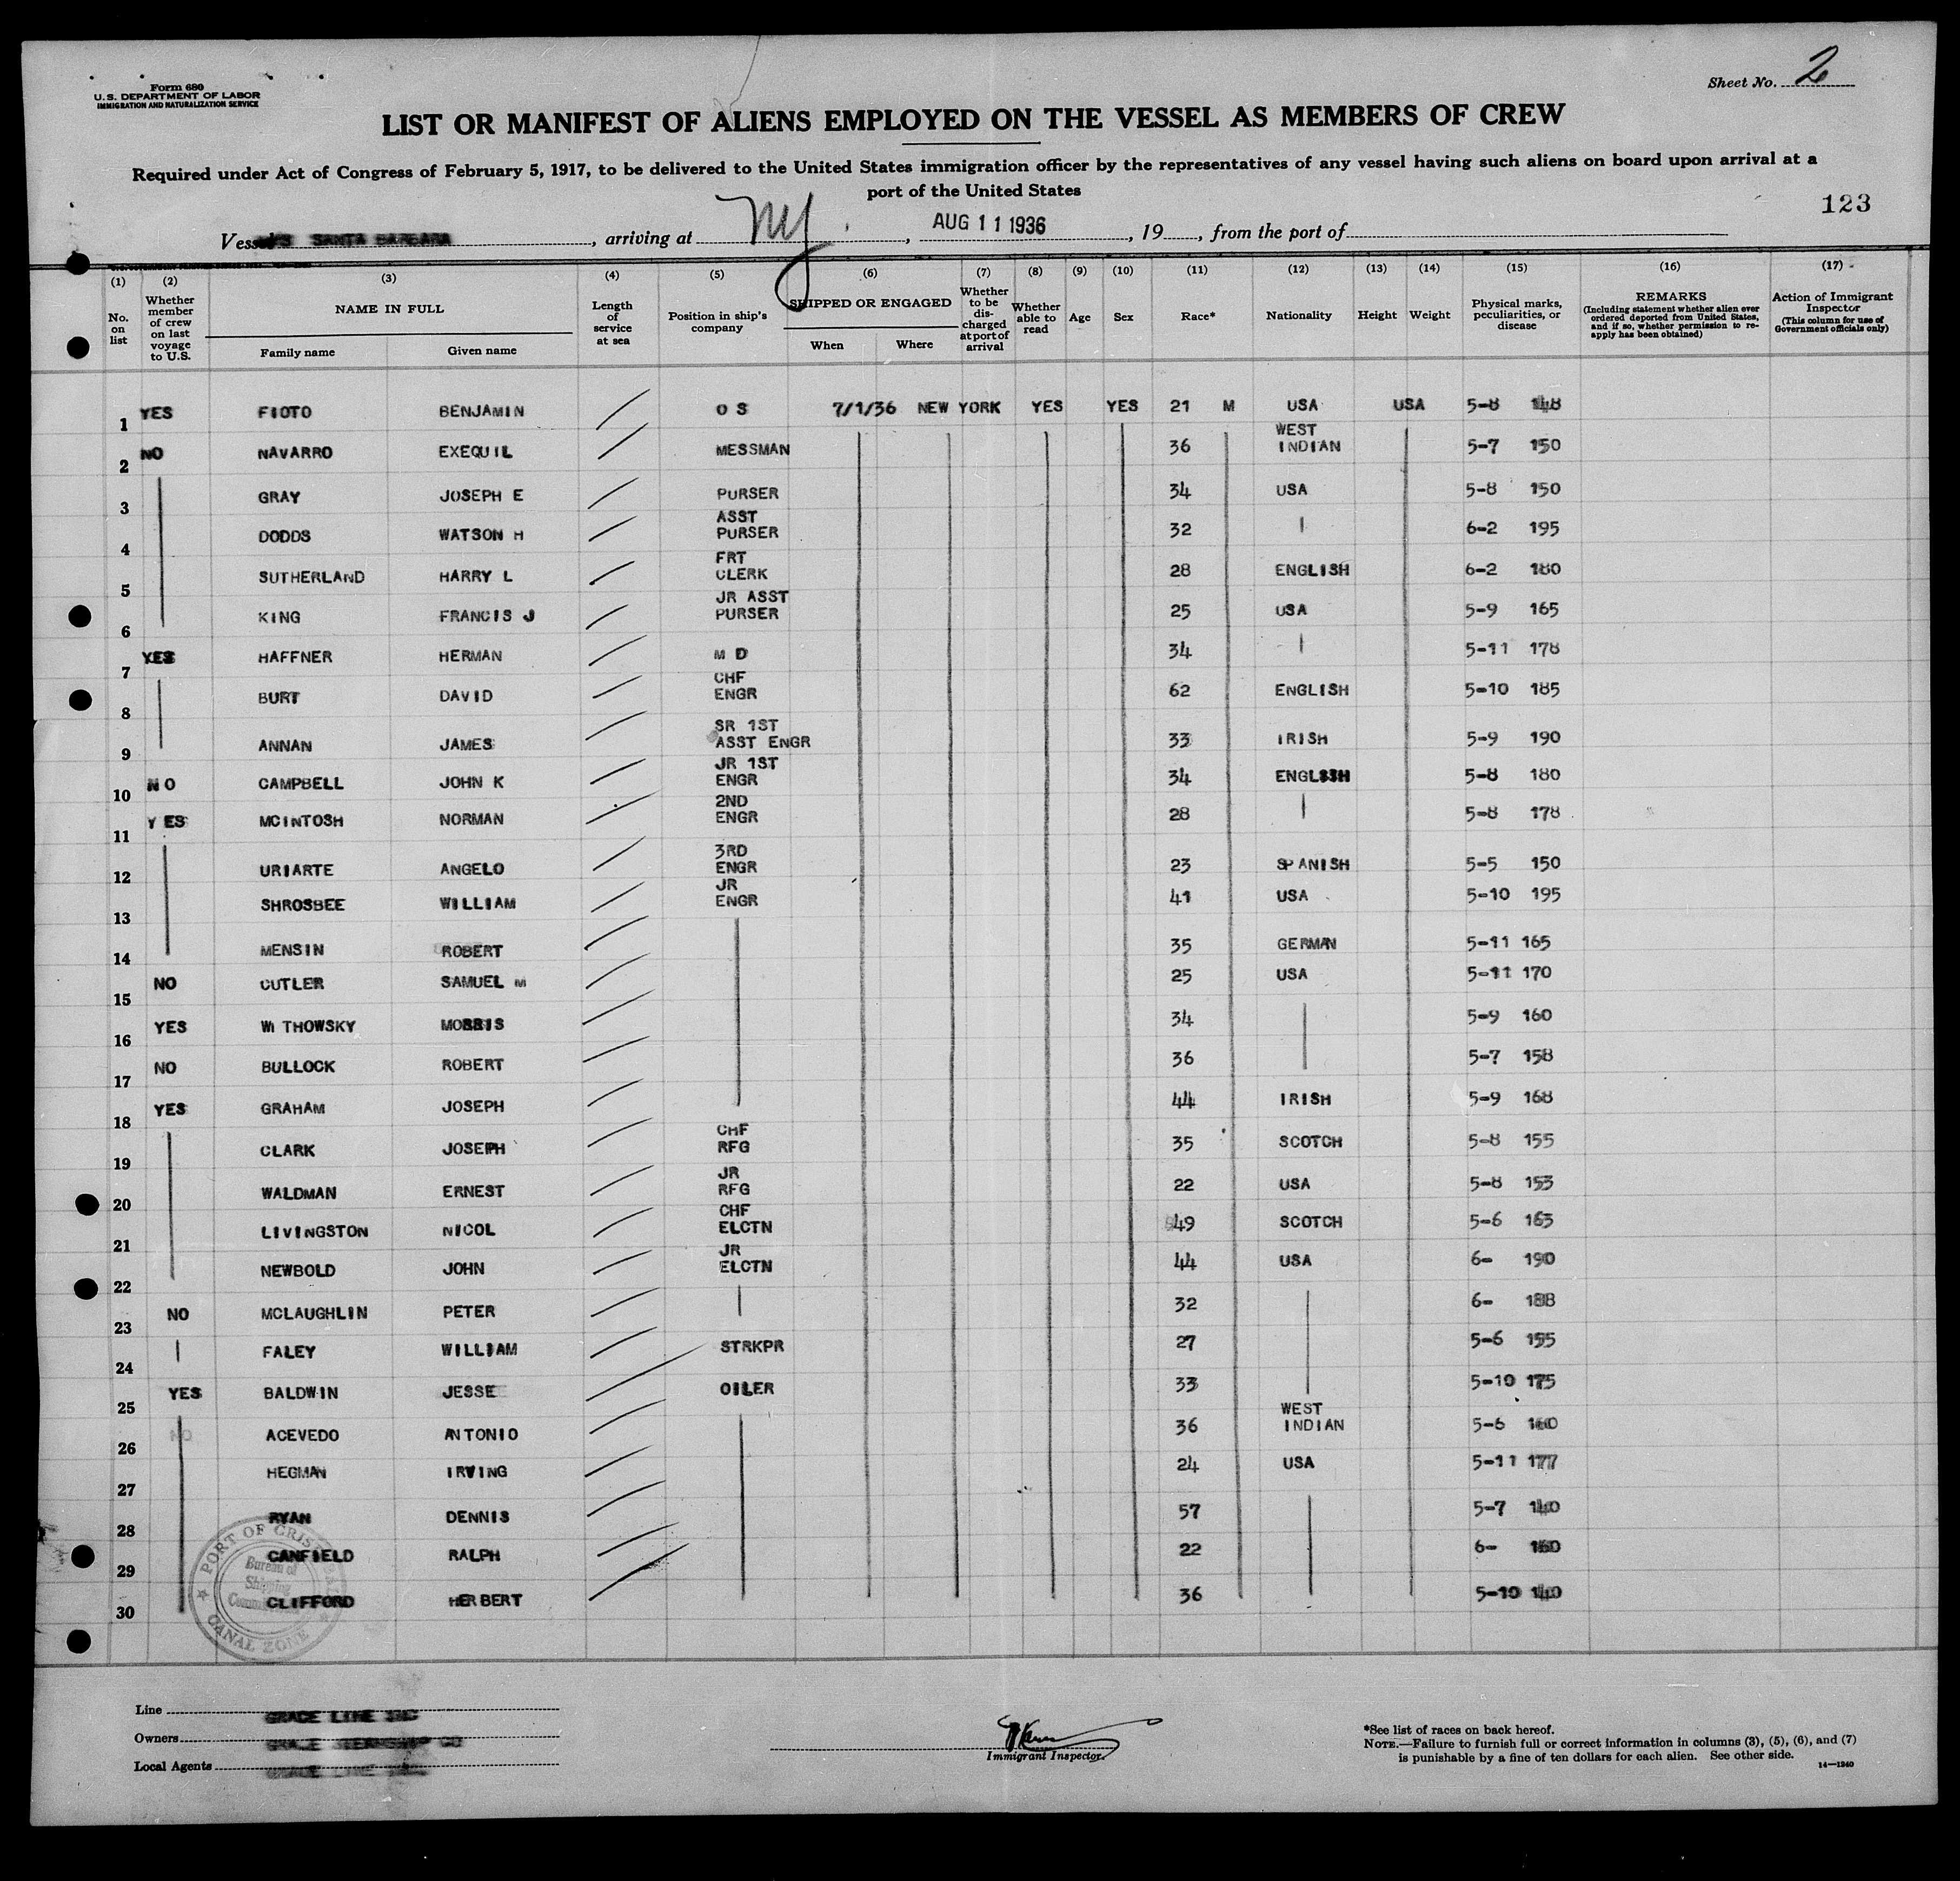 Form 680
U.S. DEPARTMENT OF LABOR
IMMIGRATION AND NATURALIZATION SERVICE
Sheet No. 2
LIST OR MANIFEST OF ALIENS EMPLOYED ON THE VESSEL AS MEMBERS OF CREW
Required under Act of Congress of February 5, 1917, to be delivered to the United States immigration officer by the representatives of any vessel having such aliens on board upon arrival at a
port of the United States
123
Vessel SANTA BARBARA, arriving at NY, AUG 11 1936, 19, from the port of
(1) (2) (3) (4) (5) (6) (7) (8) (9) (10) (11) (12) (13) (14) (15) (16) (17)
No. on list
Whether member of crew on last voyage to U.S.
NAME IN FULL
Family name Given name
Length of service at sea
Position in ship's company
SHIPPED OR ENGAGED
When Where
Whether to be discharged at port of arrival
Whether able to read
Age
Sex
Race*
Nationality
Height
Weight
Physical marks, peculiarities, or disease
REMARKS
(Including statement whether alien ever ordered deported from United States, and if so, whether permission to re-apply has been obtained)
Action of Immigrant Inspector
(This column for use of Government officials only)
1 YES FIOTO BENJAMIN O S 7/1/36 NEW YORK YES YES 21 M USA USA 5-8 148
2 NO NAVARRO EXEQUIL MESSMAN 36 WEST INDIAN 5-7 150
3 GRAY JOSEPH E PURSER 34 USA 5-8 150
4 DODDS WATSON H ASST PURSER 32 6-2 195
5 SUTHERLAND HARRY L FRT CLERK 28 ENGLISH 6-2 180
6 KING FRANCIS J JR ASST PURSER 25 USA 5-9 165
7 YES HAFFNER HERMAN M D 34 5-11 178
8 BURT DAVID CHF ENGR 62 ENGLISH 5-10 185
9 ANNAN JAMES SR 1ST ASST ENGR 33 IRISH 5-9 190
10 NO CAMPBELL JOHN K JR 1ST ENGR 34 ENGLISH 5-8 180
11 YES MCINTOSH NORMAN 2ND ENGR 28 5-8 178
12 URIARTE ANGELO 3RD ENGR 23 SPANISH 5-5 150
13 SHROSBEE WILLIAM JR ENGR 41 USA 5-10 195
14 MENSIN ROBERT 35 GERMAN 5-11 165
15 NO CUTLER SAMUEL M 25 USA 5-11 170
16 YES WITHOWSKY MORRIS 34 5-9 160
17 NO BULLOCK ROBERT 36 5-7 158
18 YES GRAHAM JOSEPH 44 IRISH 5-9 168
19 CLARK JOSEPH CHF RFG 35 SCOTCH 5-8 155
20 WALDMAN ERNEST JR RFG 22 USA 5-8 153
21 LIVINGSTON NICOL CHF ELCTN 49 SCOTCH 5-6 163
22 NEWBOLD JOHN JR ELCTN 44 USA 6- 190
23 NO MCLAUGHLIN PETER 32 6- 188
24 FALEY WILLIAM STRKPR 27 5-6 155
25 YES BALDWIN JESSE OILER 33 5-10 175
26 NO ACEVEDO ANTONIO 36 WEST INDIAN 5-6 160
27 HEGMAN IRVING 24 USA 5-11 177
28 RYAN DENNIS 57 5-7 140
29 CANFIELD RALPH 22 6- 160
30 CLIFFORD HERBERT 36 5-10 140
PORT OF CRISTOBAL
Bureau of
Shipping
CANAL ZONE
Line GRACE LINE INC
Owners GRACE STEAMSHIP CO
Local Agents GRACE LINE
Immigrant Inspector.
*See list of races on back hereof.
NOTE.—Failure to furnish full or correct information in columns (3), (5), (6), and (7)
is punishable by a fine of ten dollars for each alien. See other side.
14—1240